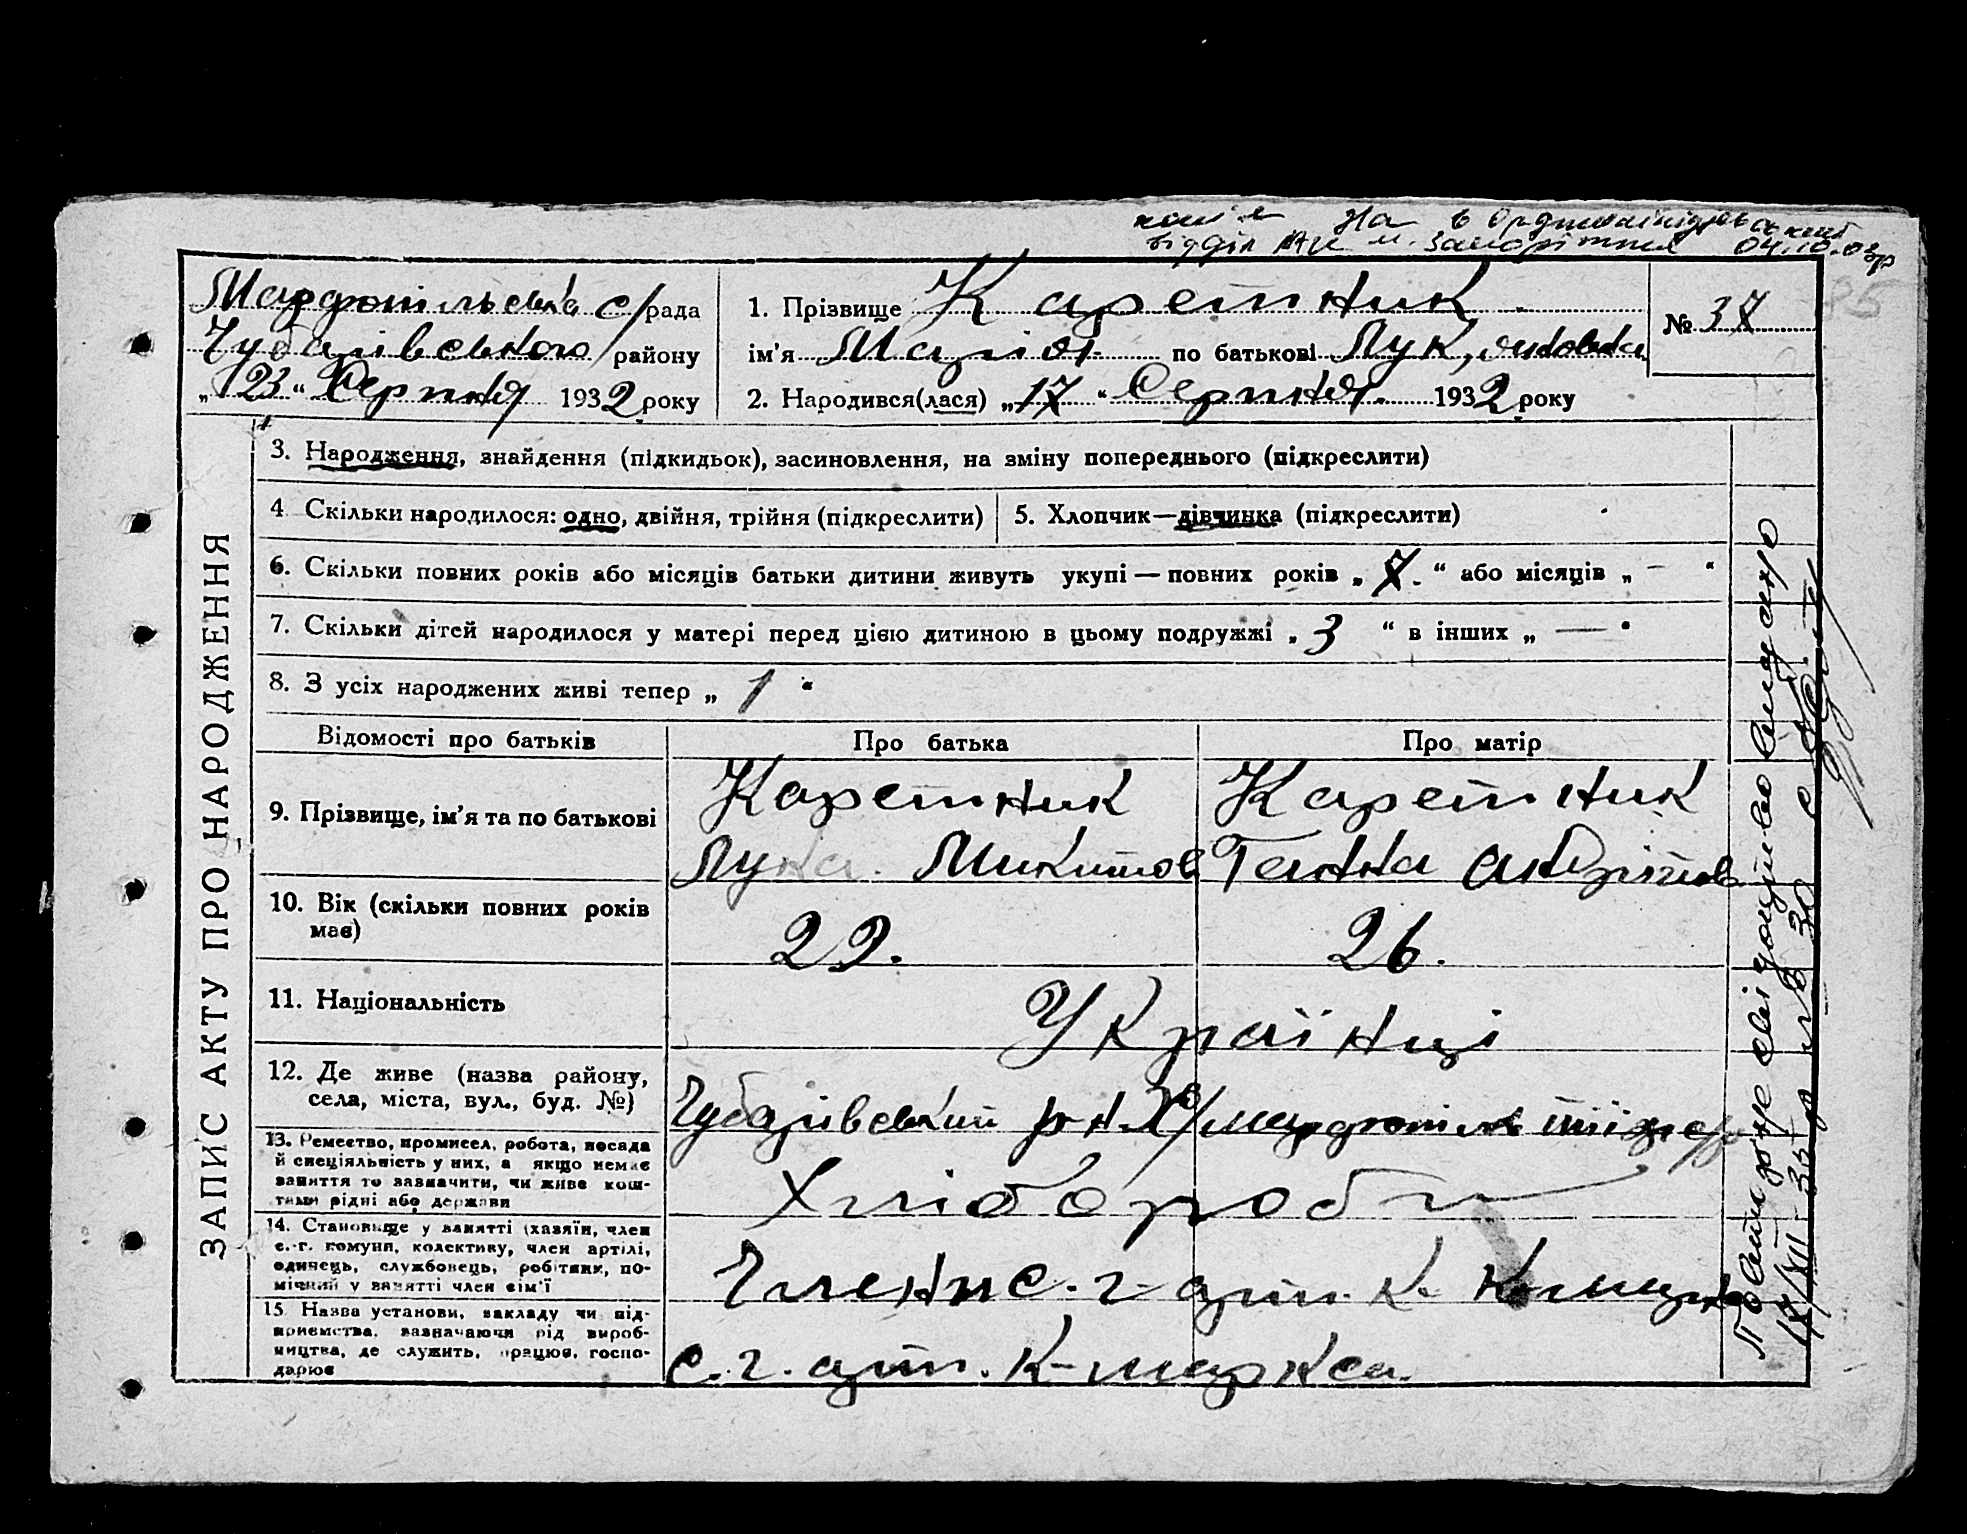 копія на в Орджонікідзевський
відділ м. Запоріжжя 04.10.03р
Марфопільська с/рада
Чубарівського району
„23“ Серпня 1932 року
1. Прізвище Каретник
ім'я Марія по батькові Лук
2. Народився(лася) „17“ Серпня 1932 року
№ 37
35
ЗАПИС АКТУ ПРО НАРОДЖЕННЯ
3. Народження, знайдення (підкидьок), засиновлення, на зміну попереднього (підкреслити)
4 Скільки народилося: одно, двійня, трійня (підкреслити)
5. Хлопчик—дівчинка (підкреслити)
6. Скільки повних років або місяців батьки дитини живуть укупі — повних років „ 7. “ або місяців „ — “
7. Скільки дітей народилося у матері перед цією дитиною в цьому подружжі „ 3 “ в інших „ — “
8. З усіх народжених живі тепер „ 1 “
Відомості про батьків
Про батька
Про матір
9. Прізвище, ім'я та по батькові
Каретник
Лука Микитов
Каретник
Ганна
10. Вік (скільки повних років
має)
29.
26.
11. Національність
Українці
12. Де живе (назва району,
села, міста, вул., буд. №)
Чубарівський р-н
13. Ремество, промисел, робота, посада
й спеціяльність у них, а якщо немає
заняття то зазначити, чи живе кош-
тами рідні або держави
Хлібороби
14. Становище у занятті (хазяїн, член
с.-г. комуни, колективу, член артілі,
одинець, службовець, робітник, по-
мічний у занятті член сім'ї
Члени с. г арт. К.
15 Назва установи, закладу чи під-
приємства, зазначаючи рід вироб-
ництва, де служить, працює, госпо-
дарює
с. г. арт. К-маркса.